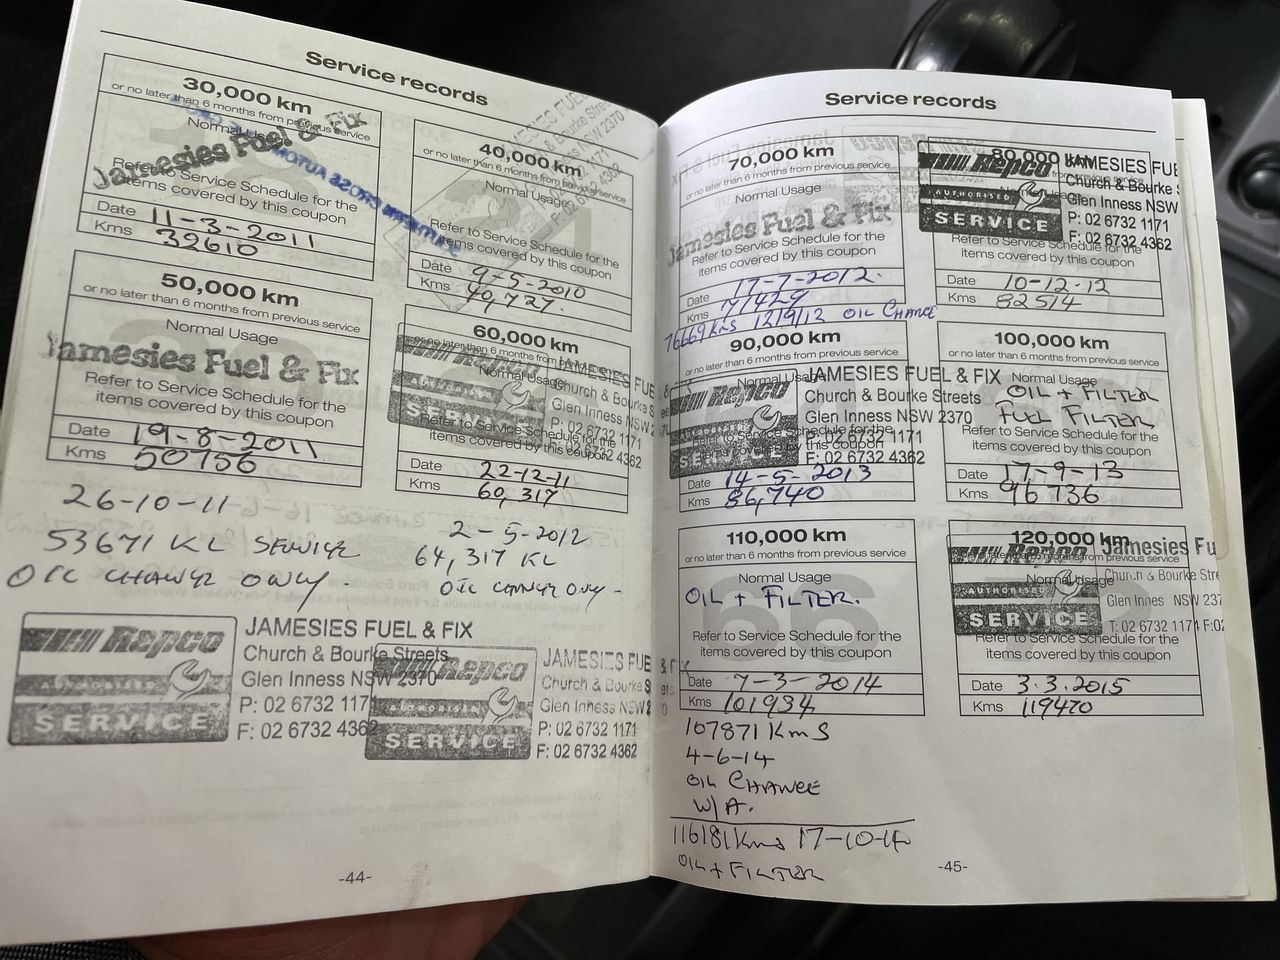 Service records
30,000 km
or no later than 6 months from previous service
Normal Usage
Jamesies Fuel & Fix
Refer to Service Schedule for the
items covered by this coupon
Date 11-3-2011
Kms 32610
40,000 km
or no later than 6 months from previous service
Normal Usage
Refer to Service Schedule for the
items covered by this coupon
Date 9-5-2010
Kms 40,727.
50,000 km
or no later than 6 months from previous service
Normal Usage
Jamesies Fuel & Fix
Refer to Service Schedule for the
items covered by this coupon
Date 19-8-2011
Kms 50156
60,000 km
or no later than 6 months from previous service
Repco
AUTHORISED
SERVICE
JAMESIES FUE
Church & Bourke S
Glen Inness NSW 2
P: 02 6732 1171
F: 02 6732 4362
Normal Usage
Refer to Service Schedule for the
items covered by this coupon
Date 22-12-11
Kms 60,317
26-10-11
53671 KL SERVICE
OIL CHANGE ONLY -
2-5-2012
64,317 KL
OIL CHANGE ONLY -
Repco
AUTHORISED
SERVICE
JAMESIES FUEL & FIX
Church & Bourke Streets
Glen Inness NSW 2370
P: 02 6732 1171
F: 02 6732 4362
Repco
AUTHORISED
SERVICE
JAMESIES FUE
Church & Bourke S
Glen Inness NSW 2
P: 02 6732 1171
F: 02 6732 4362
-44-
Service records
70,000 km
or no later than 6 months from previous service
Normal Usage
Jamesies Fuel & Fix
Refer to Service Schedule for the
items covered by this coupon
Date 17-7-2012.
Kms 71429
76669 Kms 12/9/12 OIL CHANGE
80,000 km
Repco
AUTHORISED
SERVICE
JAMESIES FUE
Church & Bourke S
Glen Inness NSW
P: 02 6732 1171
F: 02 6732 4362
Refer to Service Schedule for the
items covered by this coupon
Date 10-12-12
Kms 82514
90,000 km
or no later than 6 months from previous service
Normal Usage
Repco
SERVICE
JAMESIES FUEL & FIX
Church & Bourke Streets
Glen Inness NSW 2370
P: 02 6732 1171
F: 02 6732 4362
Refer to Service Schedule for the
items covered by this coupon
Date 14-5-2013
Kms 86,740
100,000 km
or no later than 6 months from previous service
Normal Usage
OIL + FILTER
FUEL FILTER
Refer to Service Schedule for the
items covered by this coupon
Date 17-9-13
Kms 96736
110,000 km
or no later than 6 months from previous service
Normal Usage
OIL + FILTER.
Refer to Service Schedule for the
items covered by this coupon
Date 7-3-2014
Kms 101934
120,000 km
or no later than 6 months from previous service
Normal Usage
Repco
AUTHORISED
SERVICE
Jamesies Fu
Church & Bourke Stre
Glen Innes NSW 237
T: 02 6732 1171 F:02
Refer to Service Schedule for the
items covered by this coupon
Date 3.3.2015
Kms 119470
107871 KmS
4-6-14
OIL CHANGE
W/A.
116181 Kms 17-10-14
OIL + FILTER
-45-